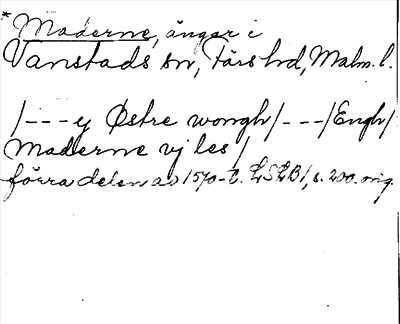 *Maderne, ängar i
Vanstads sn, Färs hd, Malm. l.
/---y Østre wongh/---/Engh/
Maderne vj les/
förra delen av 1570-t. LSLB1, s. 200. orig.